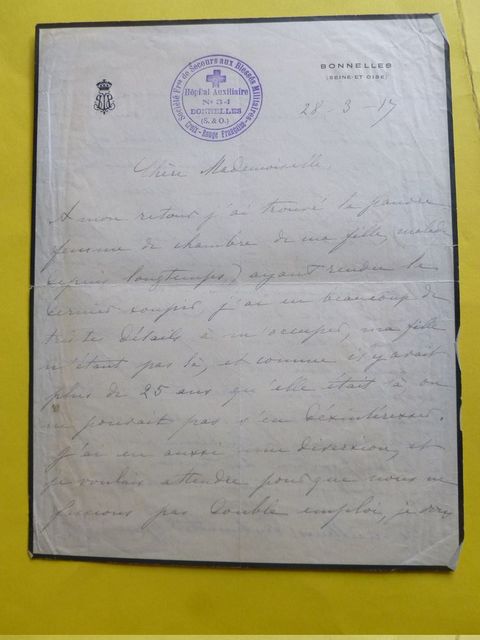 BONNELLES
(SEINE-ET-OISE)
Société Fse de Secours aux Blessés Militaires
Hôpital Auxiliaire
No 34
BONNELLES
(S. & O.)
Croix-Rouge Française
28-3-17
Chère Mademoiselle,
A mon retour j'ai trouvé la pauvre
femme de chambre de ma fille, malade
depuis longtemps, ayant rendu le
dernier soupir, j'ai eu beaucoup de
tristes détails à m'occuper, ma fille
n'étant pas là, et comme il y avait
plus de 25 ans qu'elle était là on
ne pouvait pas s'en désintéresser.
J'ai eu aussi une et
je voulais attendre pour que nous ne
fassions pas double emploi, je